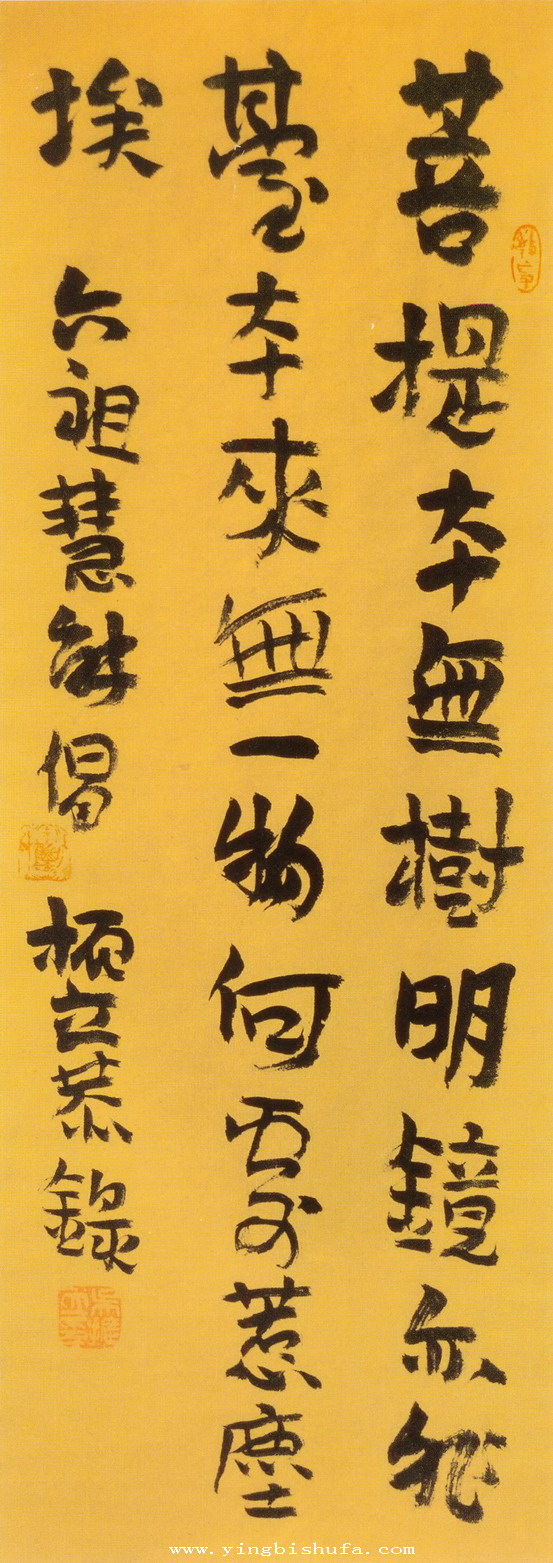 菩提本無樹明鏡亦非
臺本來無一物何處惹塵
埃 六祖慧能偈 立恭錄
www.yingbishufa.com